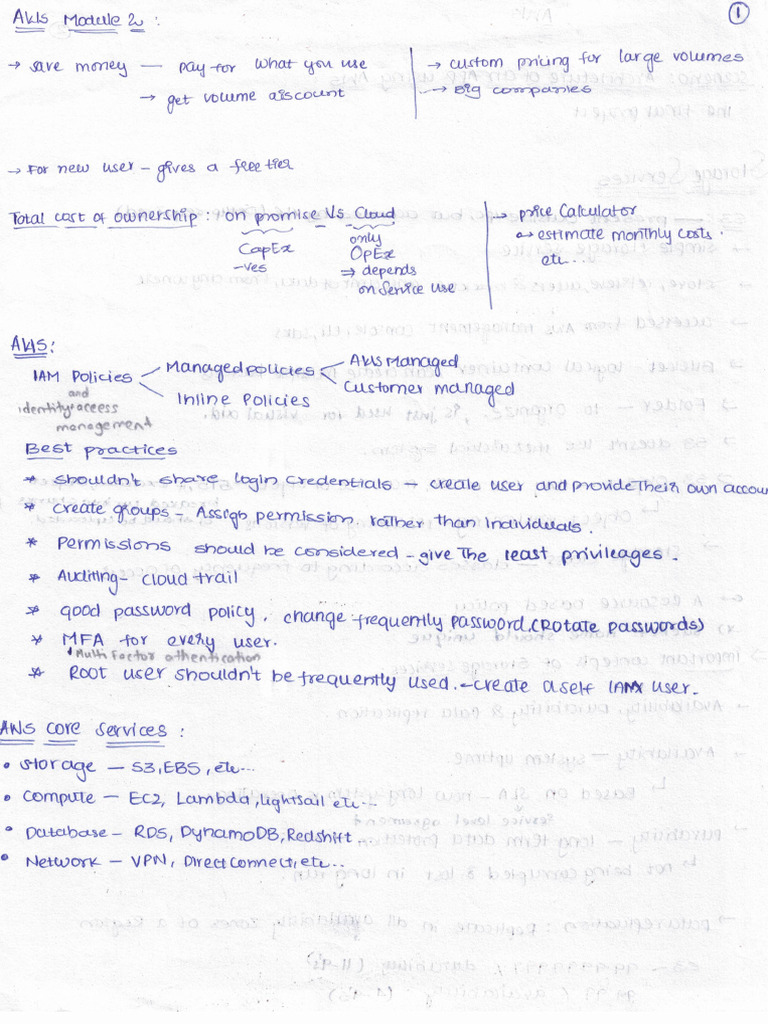 AWS Module 2 :
1
→ save money — pay for what you use
→ get volume discount
→ custom pricing for large volumes
→ Big companies
→ For new user - gives a free tier
Total cost of ownership : on promise Vs Cloud
CapEx
-ves
only
OpEx
⇒ depends
on Service use
→ price Calculator
↪ estimate monthly costs.
etc...
AWS:
IAM Policies
and
identity access
management
Managed policies
AWS Managed
Customer managed
Inline Policies
Best practices
* shouldn't share login credentials — create user and provide Their own accou
* Create groups - Assign permission rather than individuals.
* Permissions should be considered - give The least privileages.
* Auditing - cloud trail
* good password policy. change frequently password. (Rotate passwords)
* MFA for every user.
Multi Factor athentication
* Root user shouldn't be frequently used. - create a self IAM user.
AWS core services :
• Storage — S3, EBS, etc...
• Compute — EC2, Lambda, lightsail etc...
• Database - RDS, DynamoDB, Redshift
• Network — VPN, Direct connect, etc...